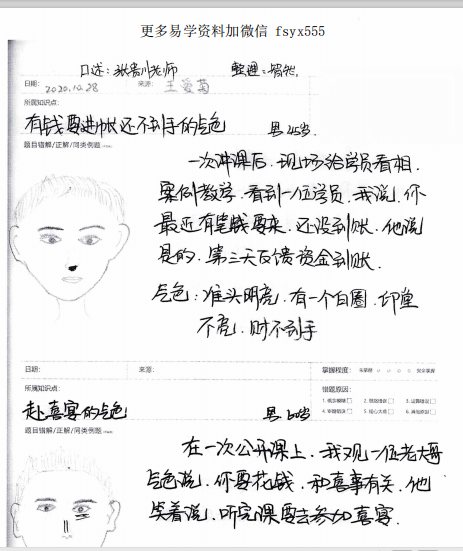 更多易学资料加微信 fsyx555
口述:张贵川老师 整理:
日期: 2020.10.28 来源: 王爱菊
所属知识点:
有钱要进帐还不到手的气色 男45岁.
题目错解/正解/同类例题
一次讲课后.现场给学员看相.
案例教学.看到一位学员.我说.你
最近有笔钱要来.还没到账.他说
是的.第三天反馈资金到账.
气色:准头明亮.有一个白圈.印堂
不亮.财不到手
日期: 来源: 掌握程度: 未掌握 完全掌握
所属知识点: 错题原因:
1. 概念模糊 2. 思路错误 3. 运算错误
赴喜宴的气色 男 60岁 4. 审题错误 5. 粗心大意 6. 其他原因
题目错解/正解/同类例题
在一次公开课上.我观一位老大哥
气色说.你要花钱.和喜事有关.他
笑着说.听完课要去参加喜宴.